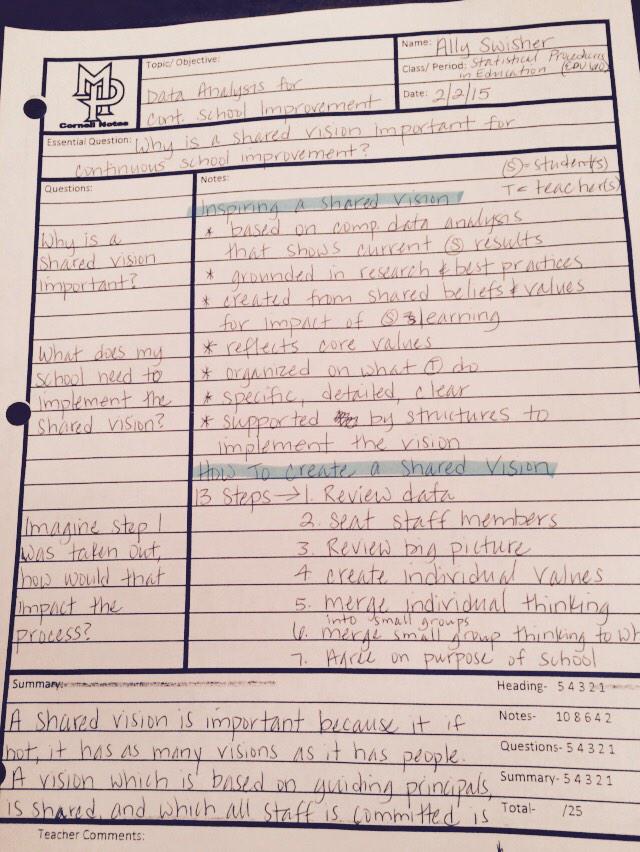 Name: Ally Swisher
Topic/ Objective:
Class/ Period: Statistical Procedures
in Education
Data Analysis for
Cont. School Improvement
Date: 2/2/15
Cornell Notes
Essential Question: Why is a shared vision important for
continuous school improvement?
(S)= student(s)
T= teacher(s)
Questions:
Why is a
shared vision
important?
What does my
school need to
implement the
shared vision?
Imagine step 1
was taken out,
how would that
impact the
process?
Notes:
Inspiring a shared vision
* based on comp. data analysis
that shows current (S) results
* grounded in research & best practices
* created from shared beliefs & values
for impact of (S) learning
* reflects core values
* organized on what (T) do
* specific, detailed, clear
* supported by structures to
implement the vision
How To create a shared vision
13 Steps → 1. Review data
2. Seat staff members
3. Review big picture
4. create individual values
5. merge individual thinking
into small groups
6. merge small group thinking to wh
7. Agree on purpose of school
Summary:
A shared vision is important because it if
not, it has as many visions as it has people.
A vision which is based on guiding principals,
is shared, and which all staff is committed is
Heading- 5 4 3 2 1
Notes- 10 8 6 4 2
Questions- 5 4 3 2 1
Summary- 5 4 3 2 1
Total- /25
Teacher Comments: